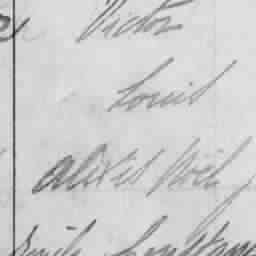 Victor
Louis
Alexis Noël